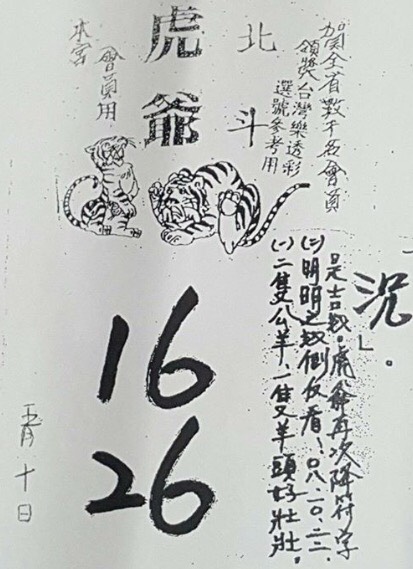 賀全省數千名會員
領獎台灣樂透彩
選號參考用
北斗
虎爺
會員用
本宮
(一)二隻公羊,二隻又羊頭好壯壯.
(二)明明之數倒反看!08.10.22.
是吉數。虎爺再次降符字
「況」。
16
26
五月十日